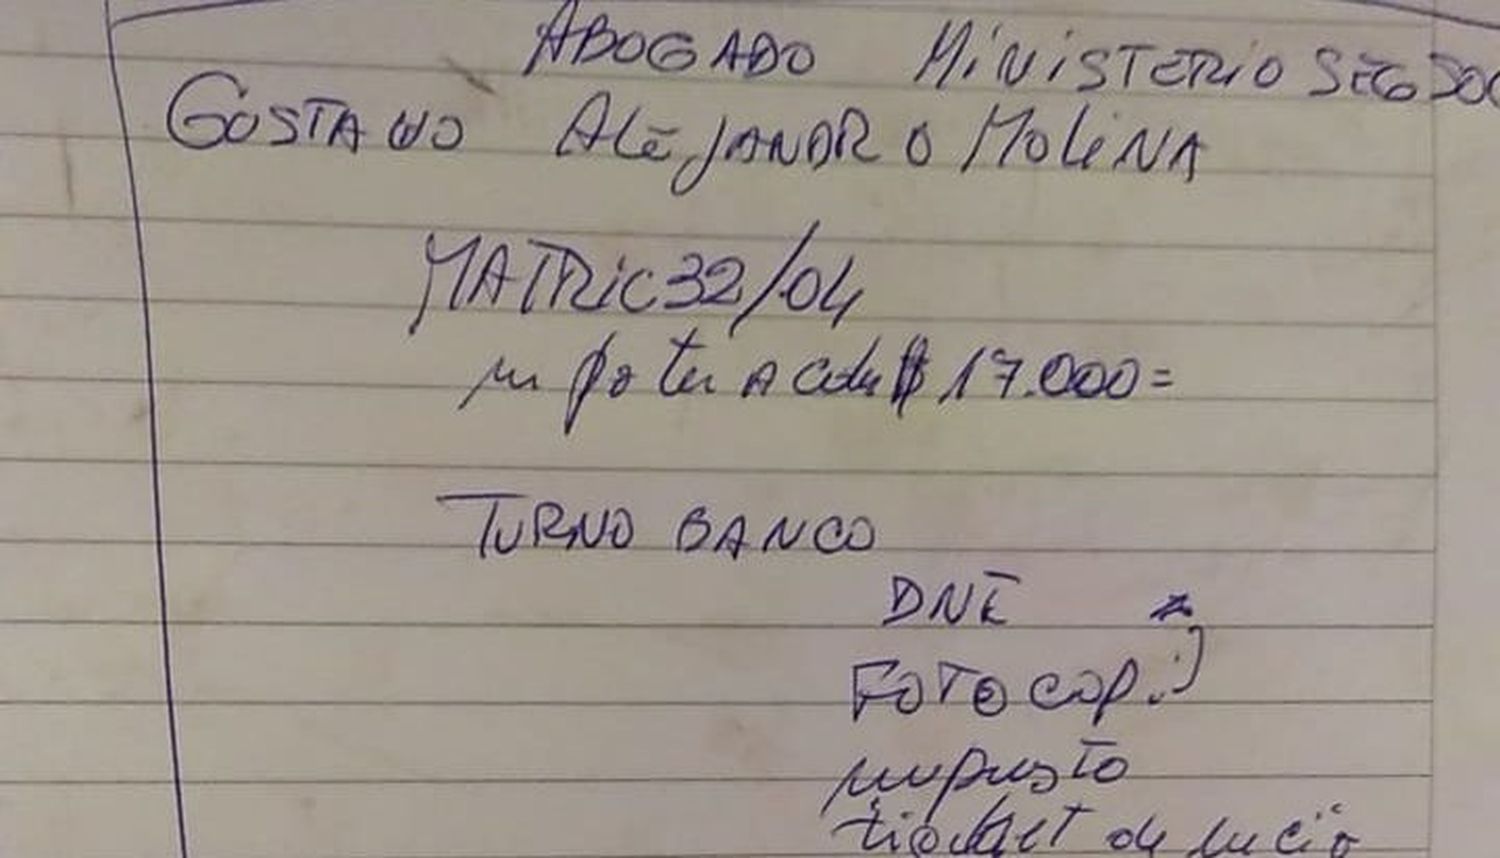 ABOGADO MINISTERIO SEG SOC
GUSTAVO ALEJANDRO MOLINA
MATRIC 32/04
$ 17.000=
TURNO BANCO
DNI
FOTOCOP.
impuesto
de